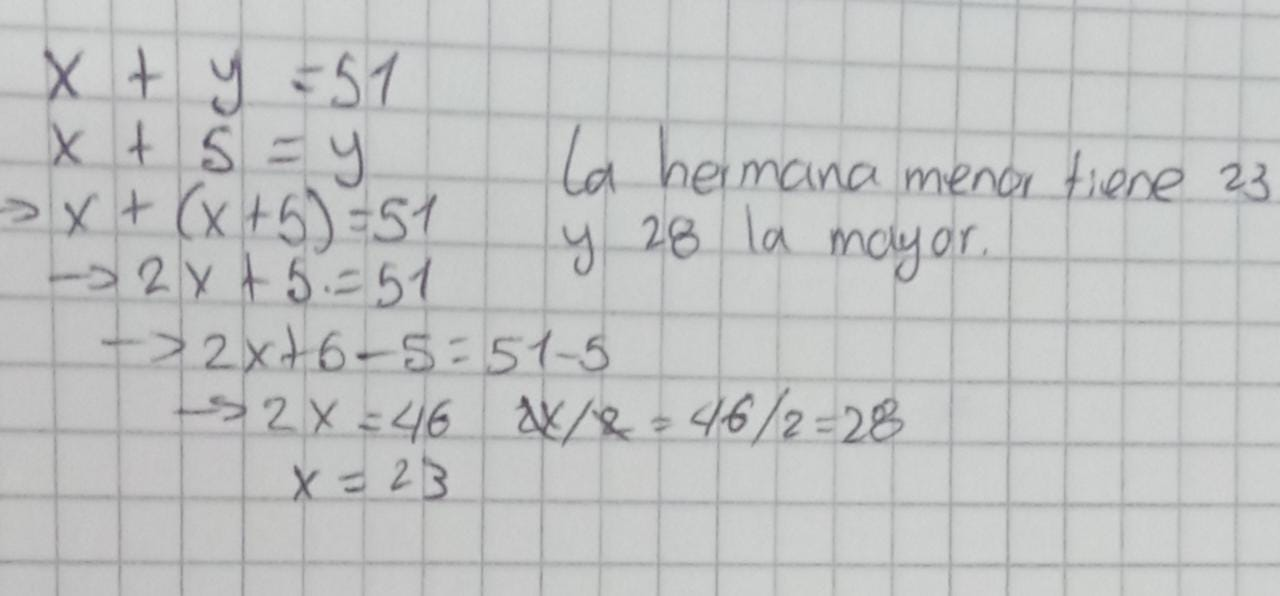 x + y = 51
x + 5 = y
→ x + (x + 5) = 51
→ 2x + 5 . = 51
→ 2x + 6 - 5 = 51 - 5
→ 2x = 46 2x/2 = 46/2 = 28
x = 23
La hermana menor tiene 23
y 28 la mayor.